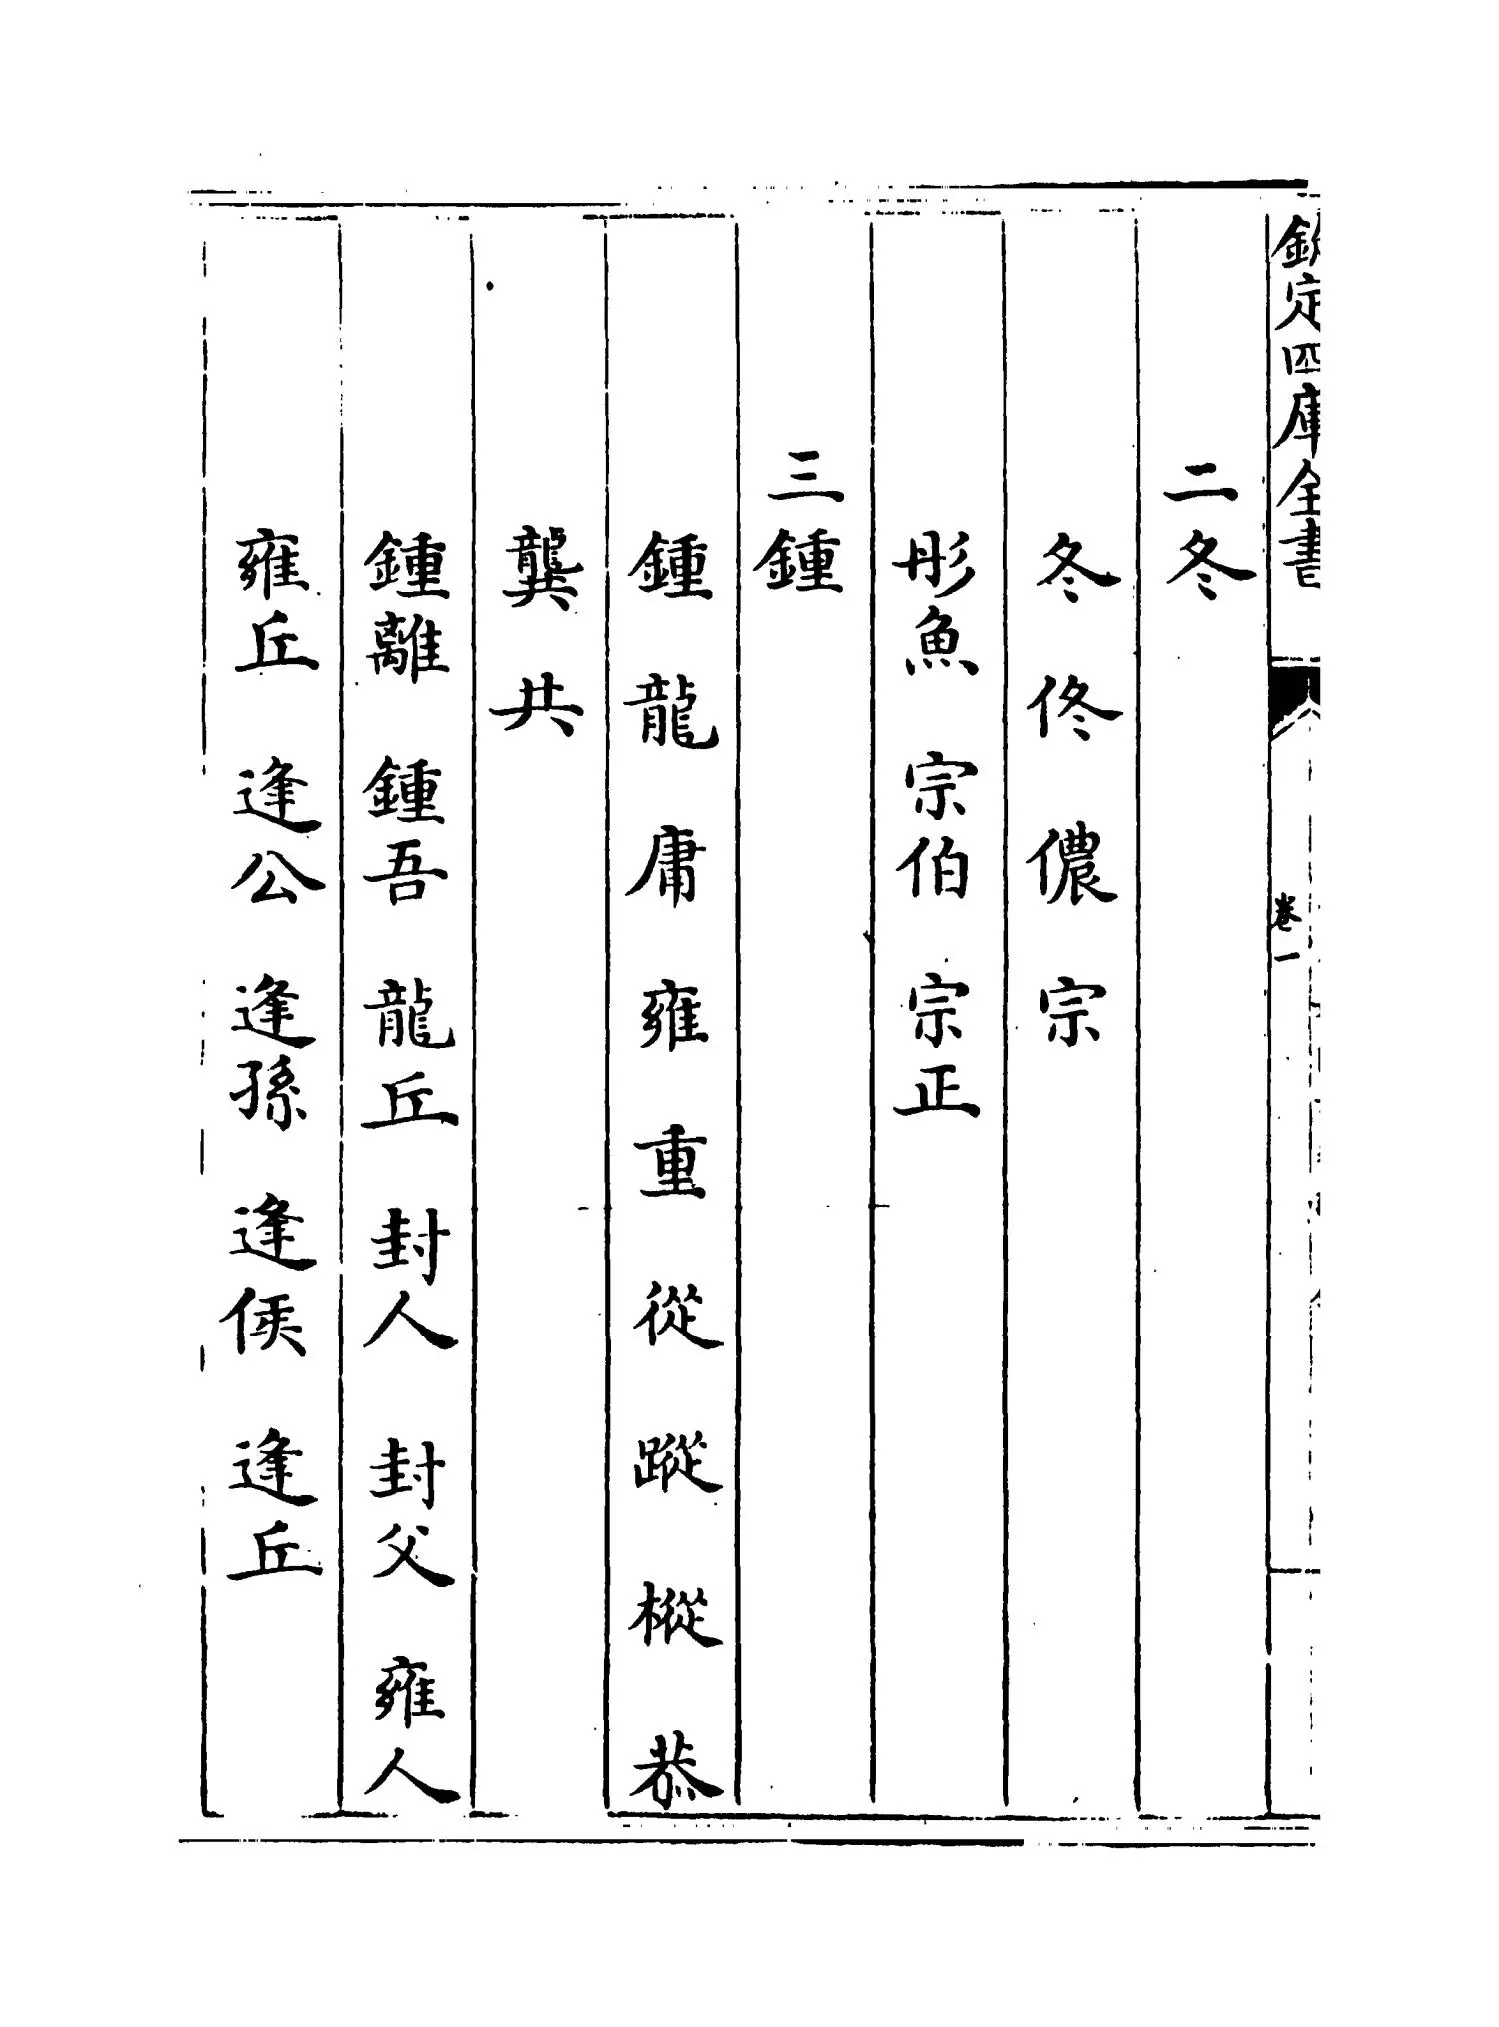 欽定四庫全書
卷一
二冬
冬 佟 儂 宗
彤魚 宗伯 宗正
三鍾
鍾 龍 庸 雍 重 從 蹤 樅 恭
龔 共
鍾離 鍾吾 龍丘 封人 封父 雍人
雍丘 逢公 逢孫 逢侯 逢丘